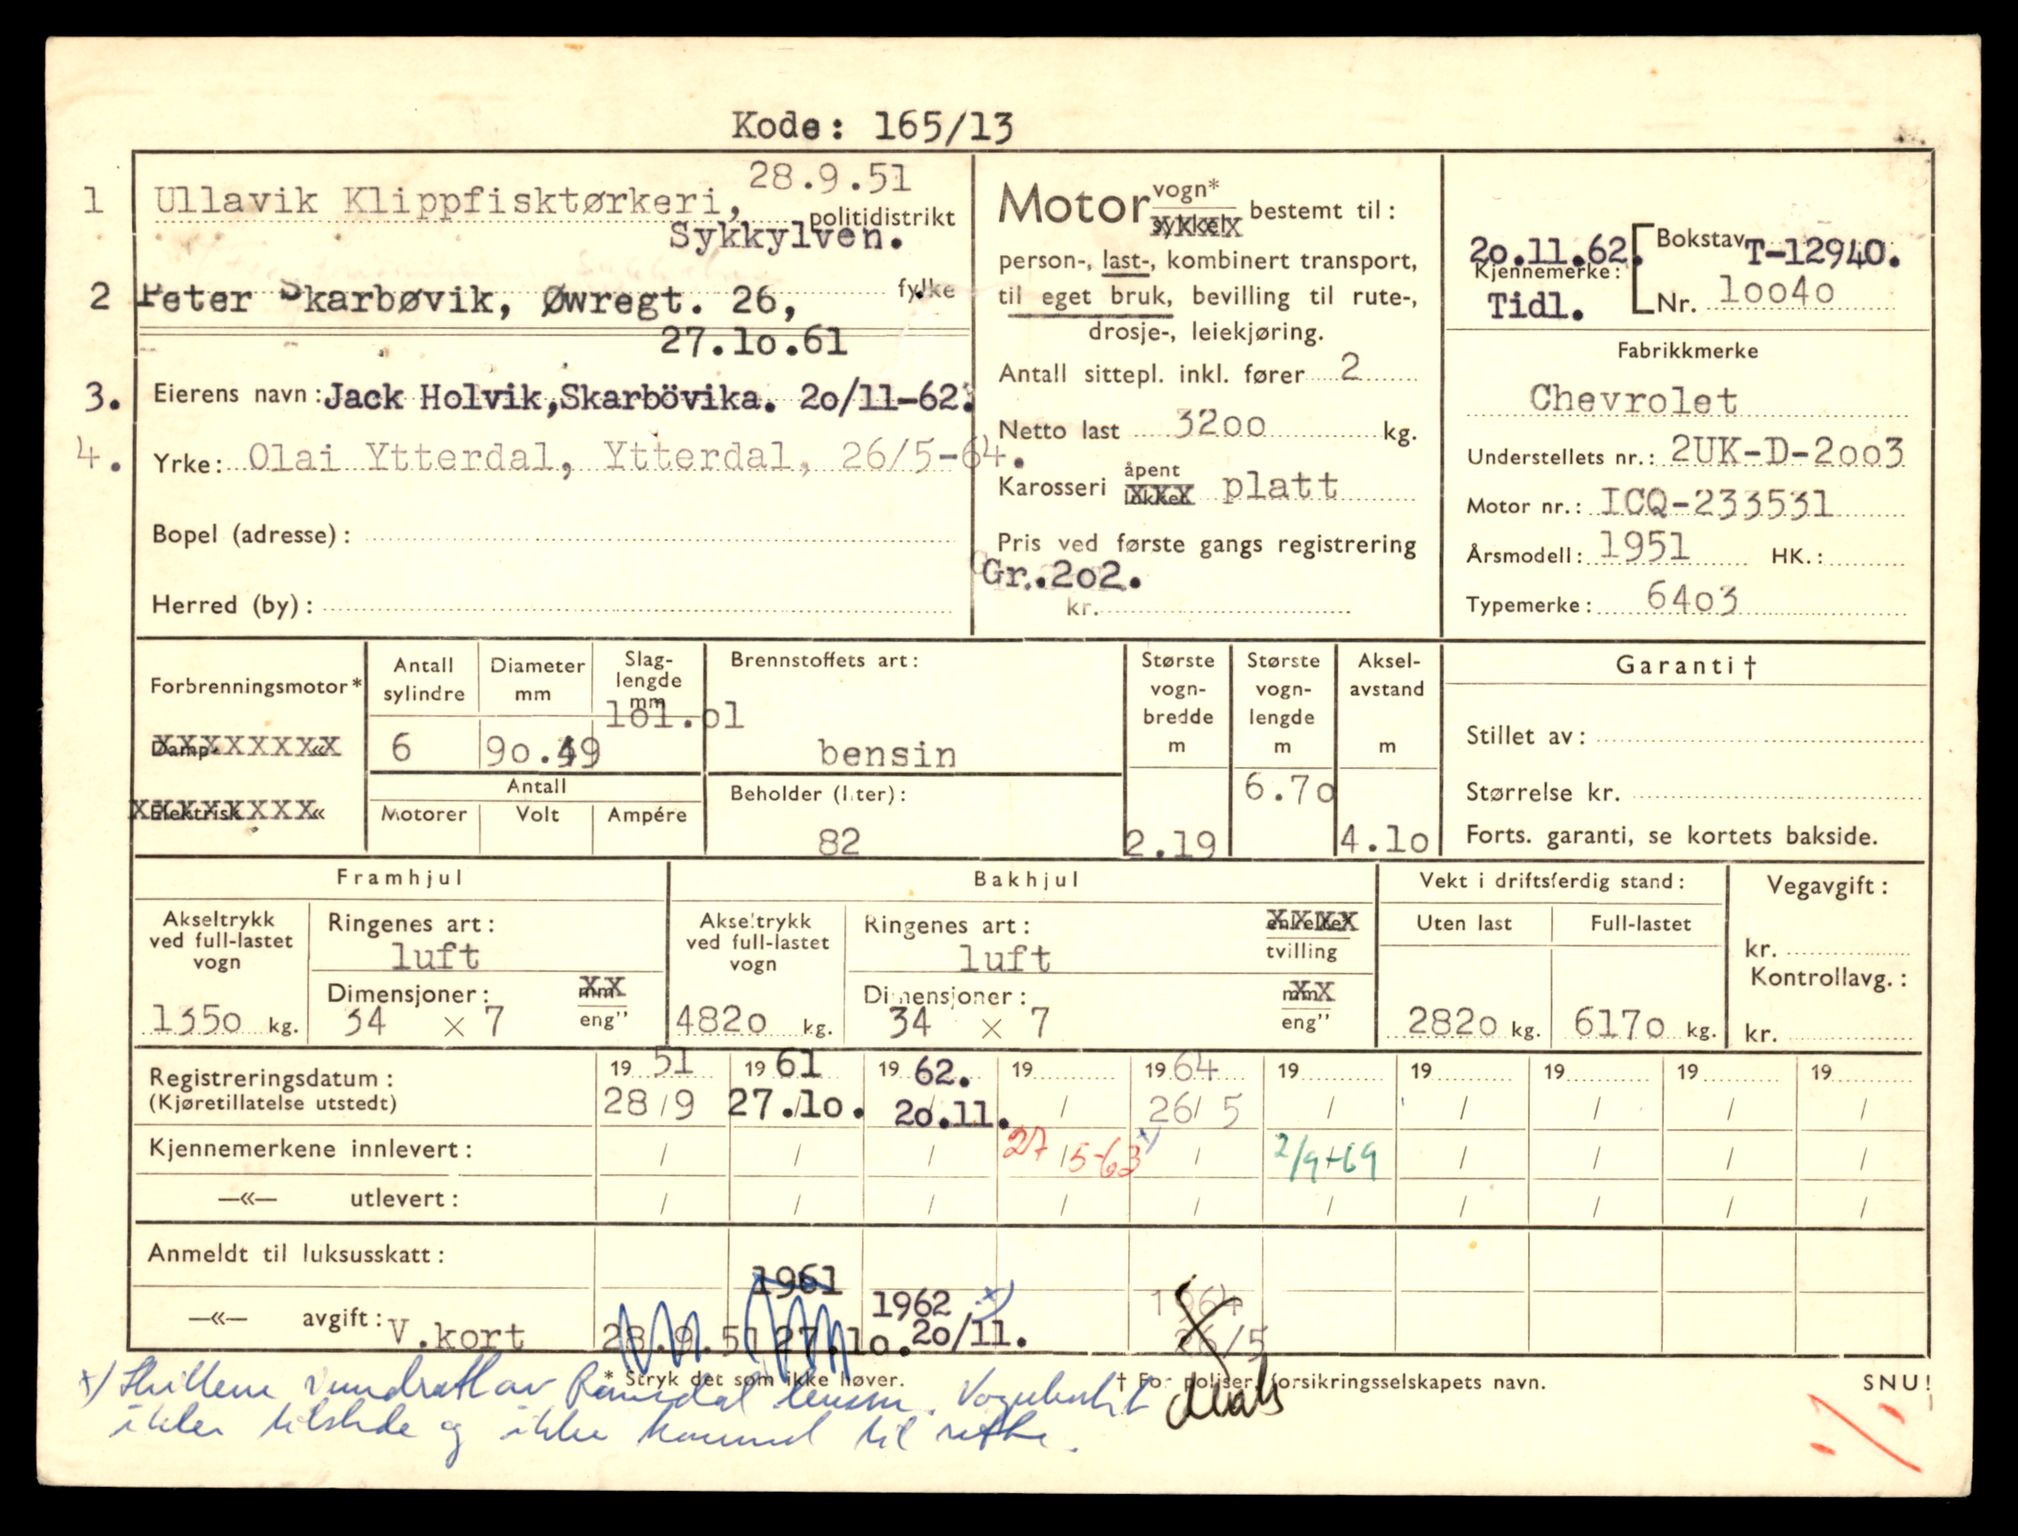 Kode: 165/13
1 Ullavik Klippfisktørkeri, 28.9.51
politidistrikt
Sykkylven.
2 Peter Skarbøvik, Øwregt. 26,
fylke
27.10.61
3. Eierens navn: Jack Holvik, Skarbövika. 20/11-62.
4. Yrke: Olai Ytterdal, Ytterdal, 26/5-64.
Bopel (adresse):
Herred (by):
Motor vogn* sykkel bestemt til:
person-, last-, kombinert transport,
til eget bruk, bevilling til rute-,
drosje-, leiekjøring.
Antall sittepl. inkl. fører 2
Netto last 3200 kg.
Karosseri åpent lukket platt
Pris ved første gangs registrering
Gr. 202.
kr.
20.11.62. Bokstav T-12940.
Kjennemerke:
Tidl. Nr. 10040
Fabrikkmerke
Chevrolet
Understellets nr.: 2UK-D-2003
Motor nr.: ICQ-233531
Årsmodell: 1951 HK.:
Typemerke: 6403
Forbrenningsmotor*
Damp- «
Elektrisk «
Antall sylindre
6
Diameter mm
90.49
Slag-lengde mm
101.01
Antall
Motorer Volt Ampére
Brennstoffets art:
bensin
Beholder (liter):
82
Største vogn-bredde m
2.19
Største vogn-lengde m
6.70
Aksel-avstand m
4.10
Garanti †
Stillet av:
Størrelse kr.
Forts. garanti, se kortets bakside.
Framhjul
Akseltrykk ved full-lastet vogn
1350 kg.
Ringenes art:
luft
Dimensjoner: mm eng"
34 x 7
Bakhjul
Akseltrykk ved full-lastet vogn
4820 kg.
Ringenes art: enkelte tvilling
luft
Dimensjoner: mm eng"
34 x 7
Vekt i driftsferdig stand:
Uten last Full-lastet
2820 kg. 6170 kg.
Vegavgift:
kr.
Kontrollavg.:
kr.
Registreringsdatum: 1951 1961 1962. 19 1964 19 19 19 19 19
(Kjøretillatelse utstedt) 28/9 27.10. 20.11. / 26/5 / / / / /
Kjennemerkene innlevert: / / / 27/5-63 x) / 2/9-69 / / / /
—«— utlevert: / / / / / / / / / /
Anmeldt til luksusskatt:
1961 1962 x) 1964
—«— avgift: V.kort 28.9.51 27.10. 20/11. 26/5
* Stryk det som ikke høver. † For poliser, forsikringsselskapets navn. SNU!
x) Skiltene inndratt av lensm. Vognkort
ikke tilstede og ikke kommet til rette.